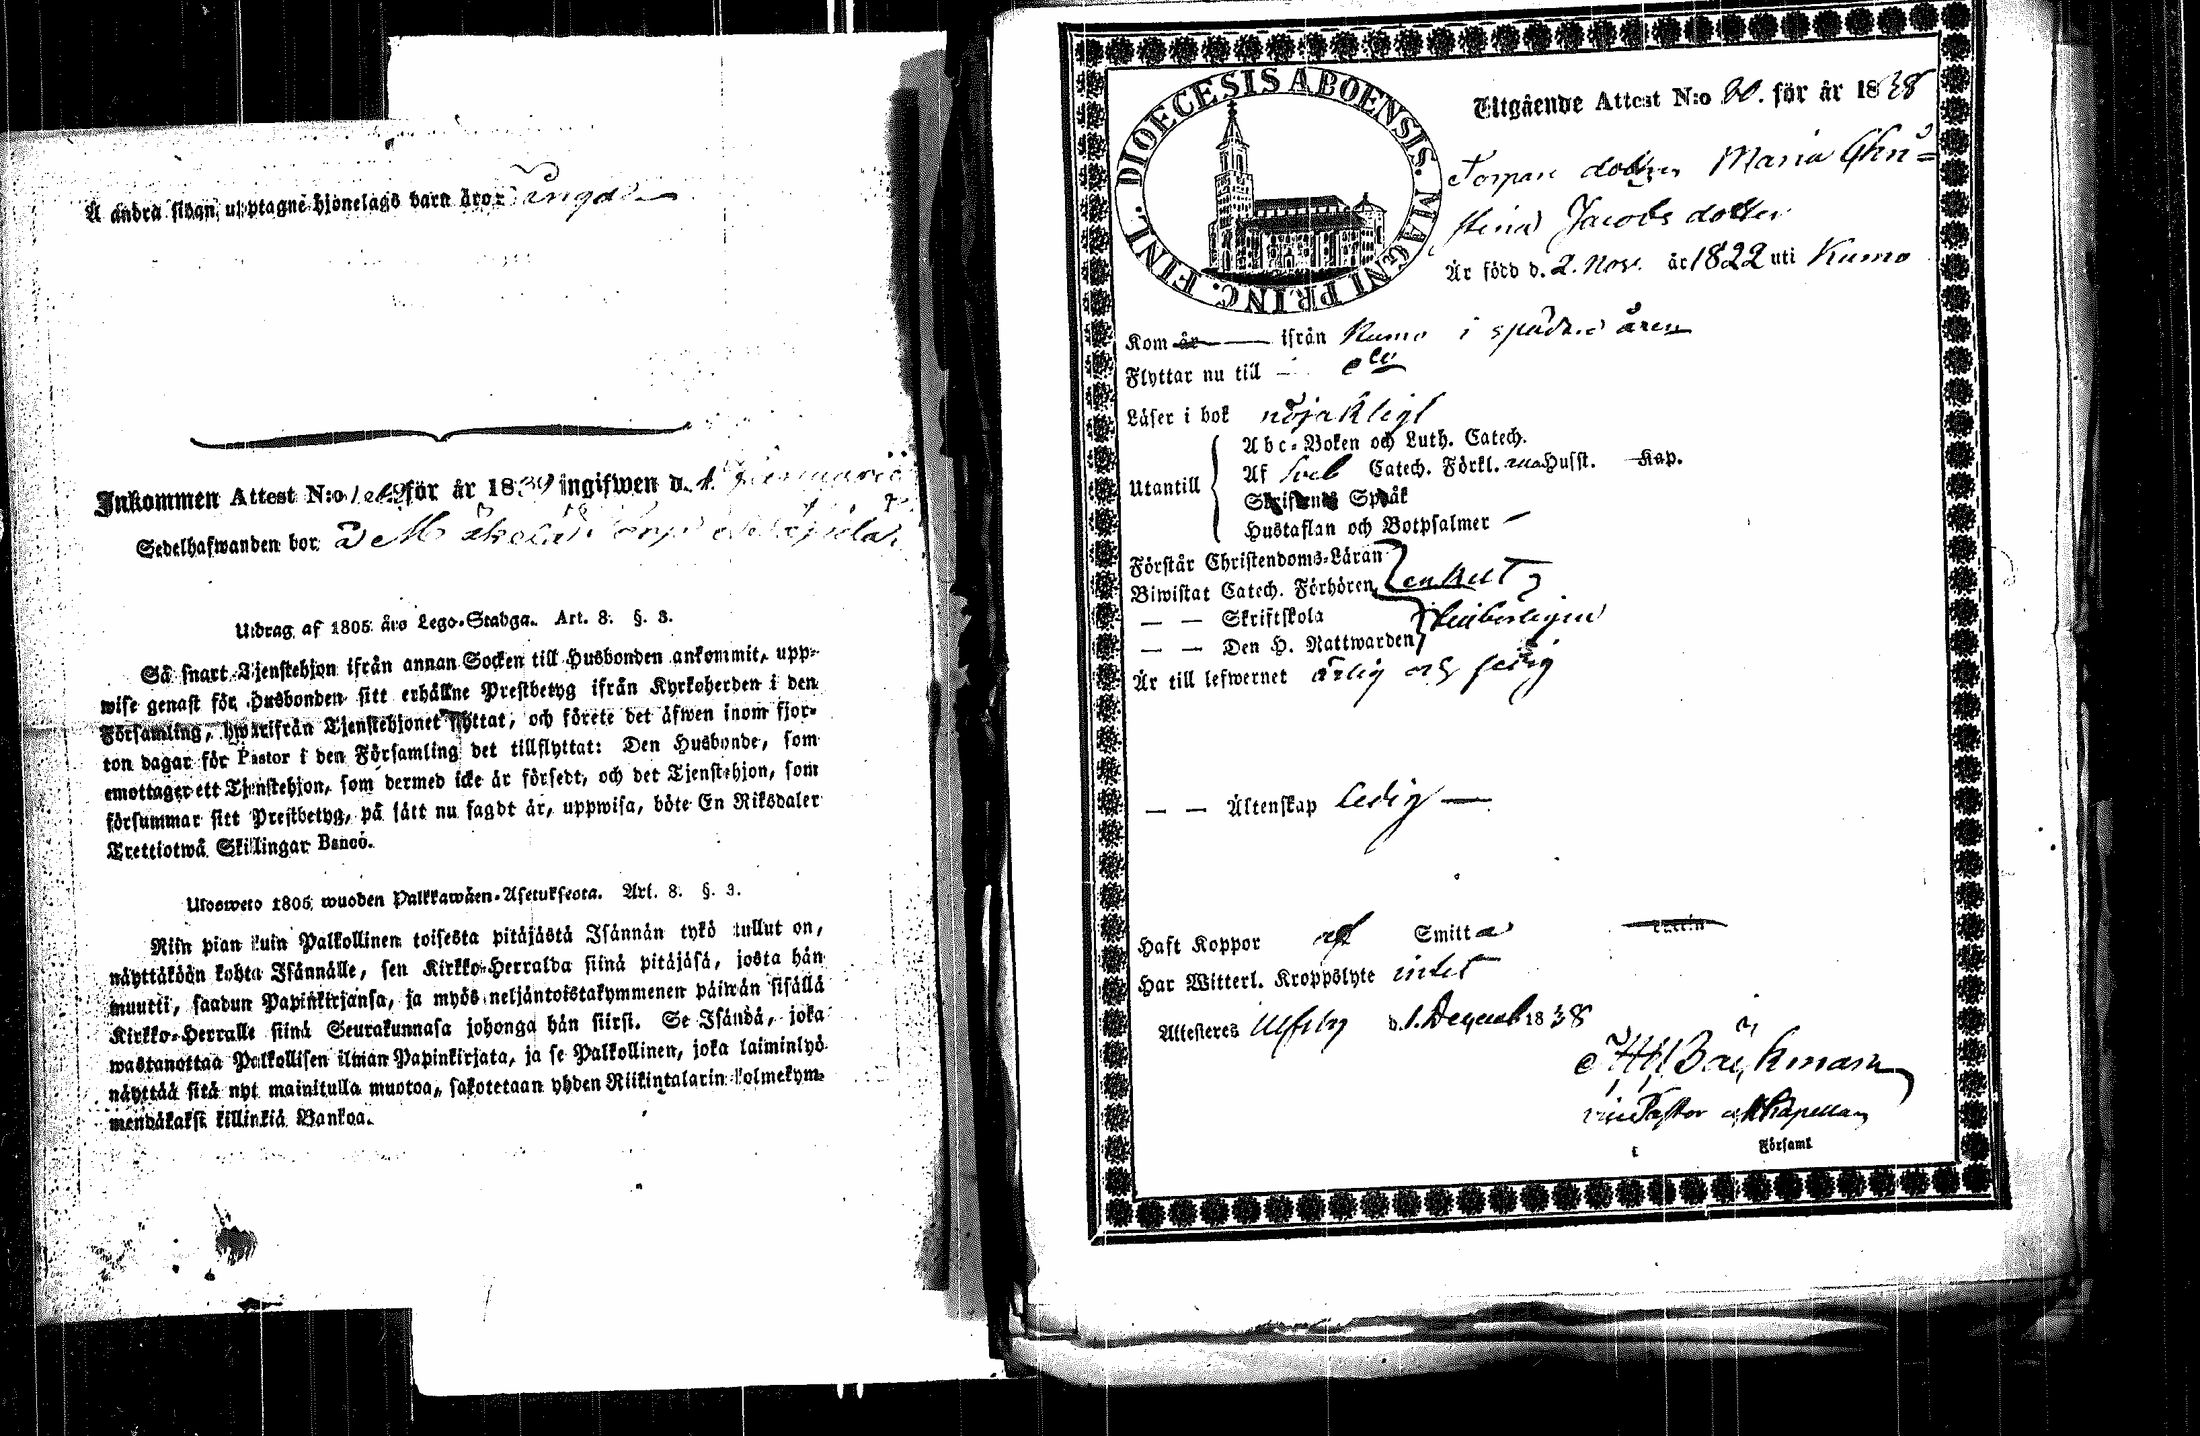 Å andra sidan upptagne hjonelags barn äro: inga
Inkommen Attest N:o för år 1839 ingifwen d. 1 Januarii
Sedelhafwanden bor å
Utdrag af 1805 års Lego-Stadga. Art. 8. §. 3.
Så snart Tjenstehjon ifrån annan Socken till Husbonden ankommit, upp-
wise genast för Husbonden sitt erhållne Prestbetyg ifrån Kyrkoherden i den
Församling, hwarifrån Tjenstehjonet flyttat, och förete det äfwen inom fjor-
ton dagar för Pastor i den Församling det tillflyttat: Den Husbonde, som
emottager ett Tjenstehjon, som dermed icke är försedt, och det Tjenstehjon, som
försummar sitt Prestbetyg, på sätt nu sagdt är, uppwisa, böte En Riksdaler
Trettiotwå Skillingar Banco.
Ulosweto 1805 wuoden Palkkawäen-Asetuksesta. Art. 8. §. 3.
Niin pian kuin Palkollinen toisesta pitäjästä Isännän tykö tullut on,
näyttäköön kohta Isännälle, sen Kirkko-Herralda siinä pitäjäsä, josta hän
muutti, saadun Papinkirjansa, ja myös neljäntoistakymmenen päiwän sisällä
Kirkko-Herralle siinä Seurakunnasa johonga hän siirsi. Se Isändä, joka
wastanottaa Palkollisen ilman Papinkirjata, ja se Palkollinen, joka laiminlyö
näyttää sitä nyt mainitulla muotoa, sakotetaan yhden Riikintalarin kolmekym-
mendäkaksi killinkiä Bankoa.
DIOECESIS ABOENSIS. MAGNI PRINC. FINL.
Utgående Attest N:o 20. för år 1838
Torpare dottren Maria Chri=
stina Jacobs dotter
Är född d. 2. Nov. år 1822 uti Kumo
Kom år — ifrån Kumo i spädare åren
Flyttar nu till
Läser i bok nöjaktligt
Utantill
Abc-Boken och Luth. Catech.
Af Sveb Catech. Förkl. Husst. Kap.
Skriftenes Språk
Hustaflan och Botpsalmer —
Förstår Christendoms-Läran enkelt
Biwistat Catech. Förhören
— — Skriftskola
— — Den H. Nattwarden
Är till lefwernet ärlig och
— — Äktenskap ledig —
Haft Koppor Smitta
Har Witterl. Kroppslyte intet
Attesteres Ulfsby d. 1. Decemb 1838
Bäckman
vice Pastor Kapellan
Församl